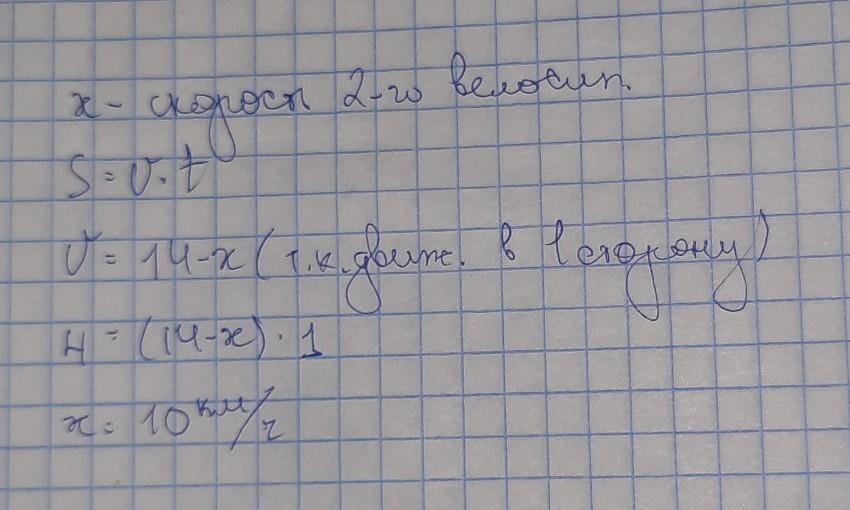 x - скорость 2-го велосип.
S = v · t
v = 14 - x (т.к. движ. в 1 сторону)
4 = (14 - x) · 1
x = 10 км/ч